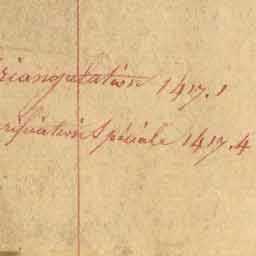 riangulation 1417.1
rification Spéciale 1417.4